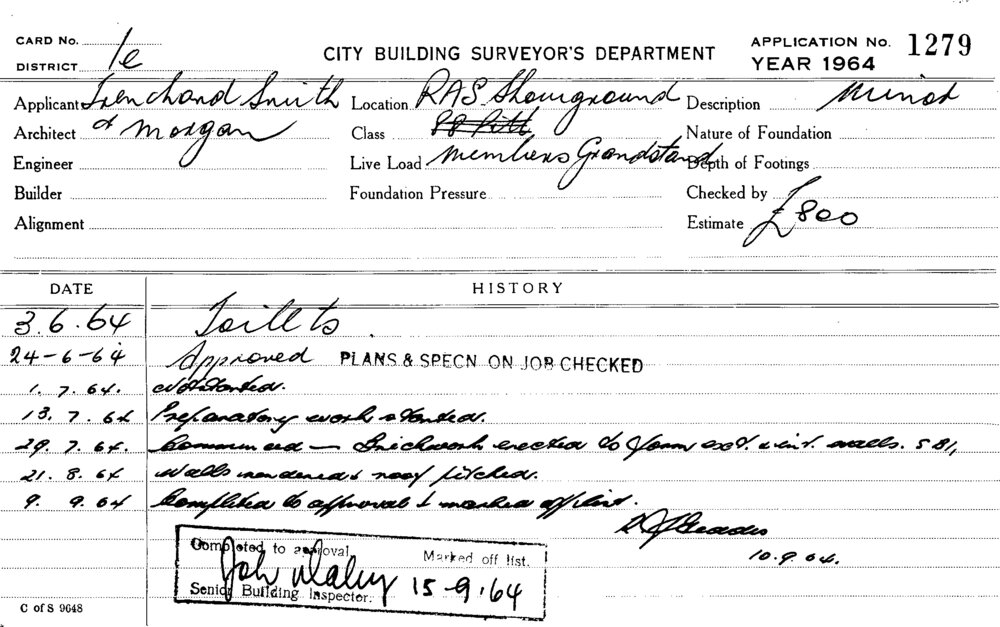 CARD No.
CITY BUILDING SURVEYOR'S DEPARTMENT
APPLICATION No. 1279
DISTRICT 1e
YEAR 1964
Applicant Trenchard Smith
Location RAS Showground
Description Minor
Architect & Morgan
Class
Nature of Foundation
Engineer
Live Load Members Grandstand
Depth of Footings
Builder
Foundation Pressure
Checked by
Alignment
Estimate £800
DATE HISTORY
3.6.64 Toillts
24-6-64 Approved PLANS & SPECN ON JOB CHECKED
1. 7. 64. Not started.
13. 7. 64 Preparatory work started.
29. 7. 64. Commenced — Brickwork erected to form ext. & int. walls.
21. 8. 64 Walls rendered & roof pitched.
9. 9. 64 Completed to approval & marked off list.
10.9.64.
Completed to approval
Marked off list.
John Daley 15-9-64
Senior Building Inspector.
C of S 9648